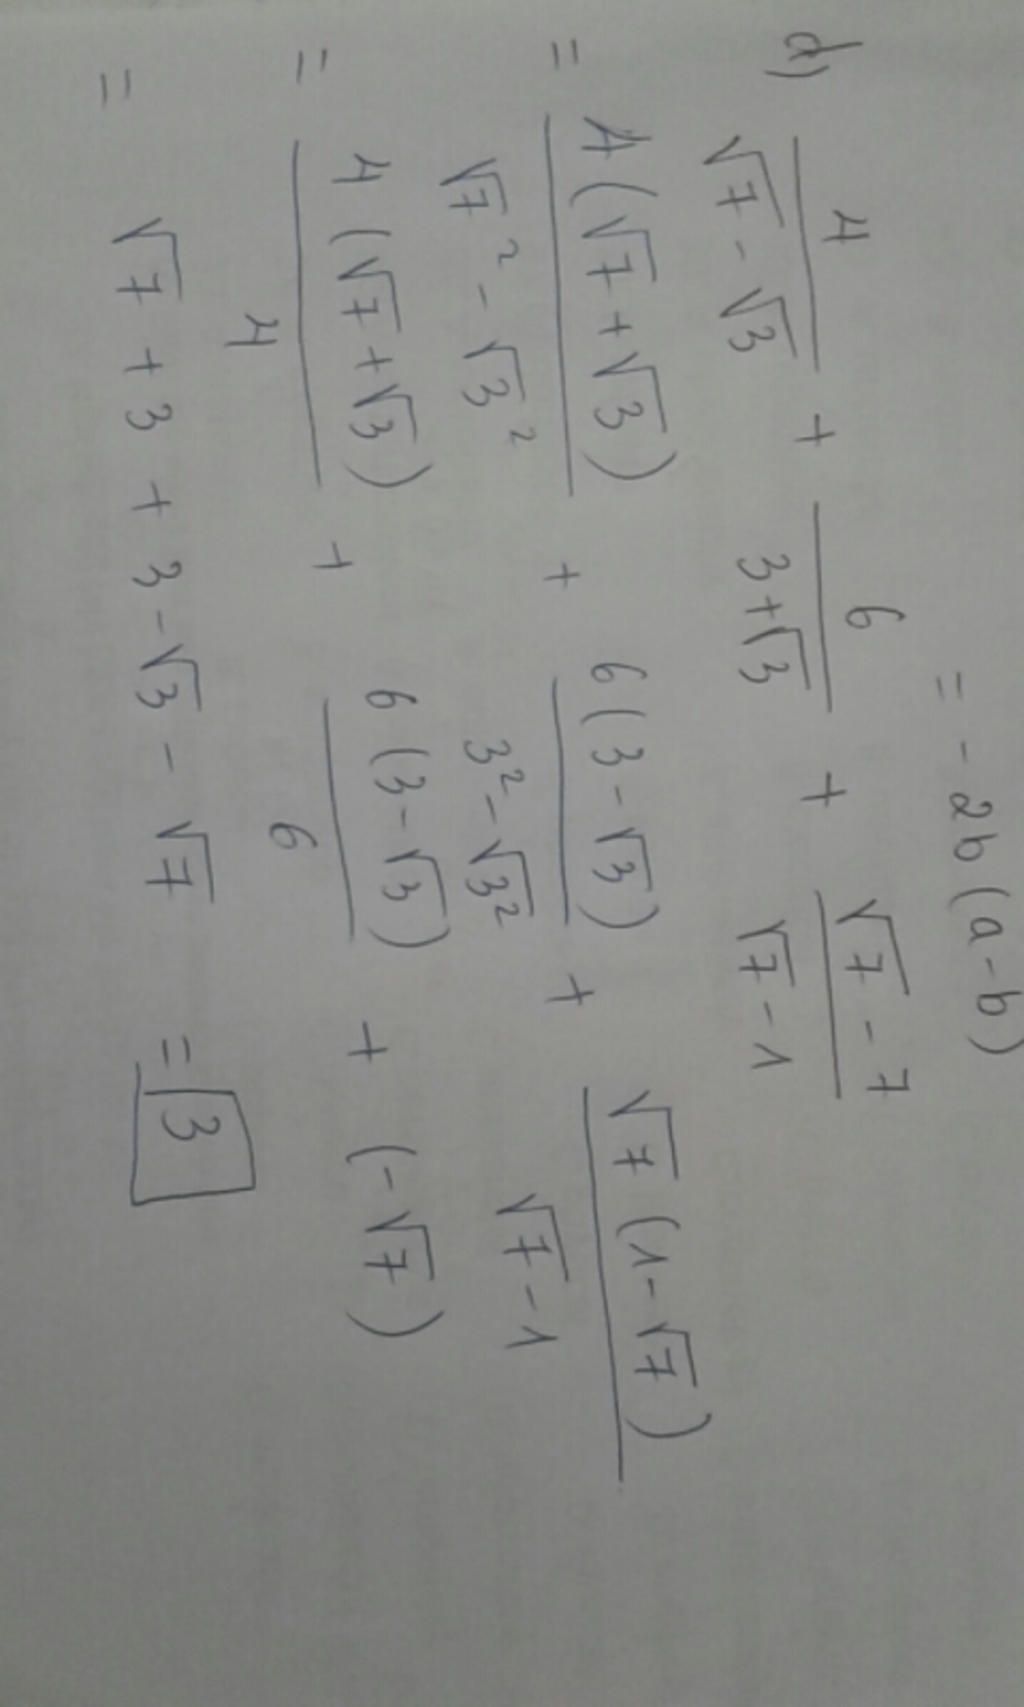 = - 2b (a - b)
d) 4/(√7 - √3) + 6/(3+√3) + (√7 - 7)/(√7 - 1)
= 4(√7 + √3)/(√7² - √3²) + 6(3 - √3)/(3² - √3²) + √7(1 - √7)/(√7 - 1)
= 4(√7 + √3)/4 + 6(3 - √3)/6 + (-√7)
= √7 + 3 + 3 - √3 - √7 = 3